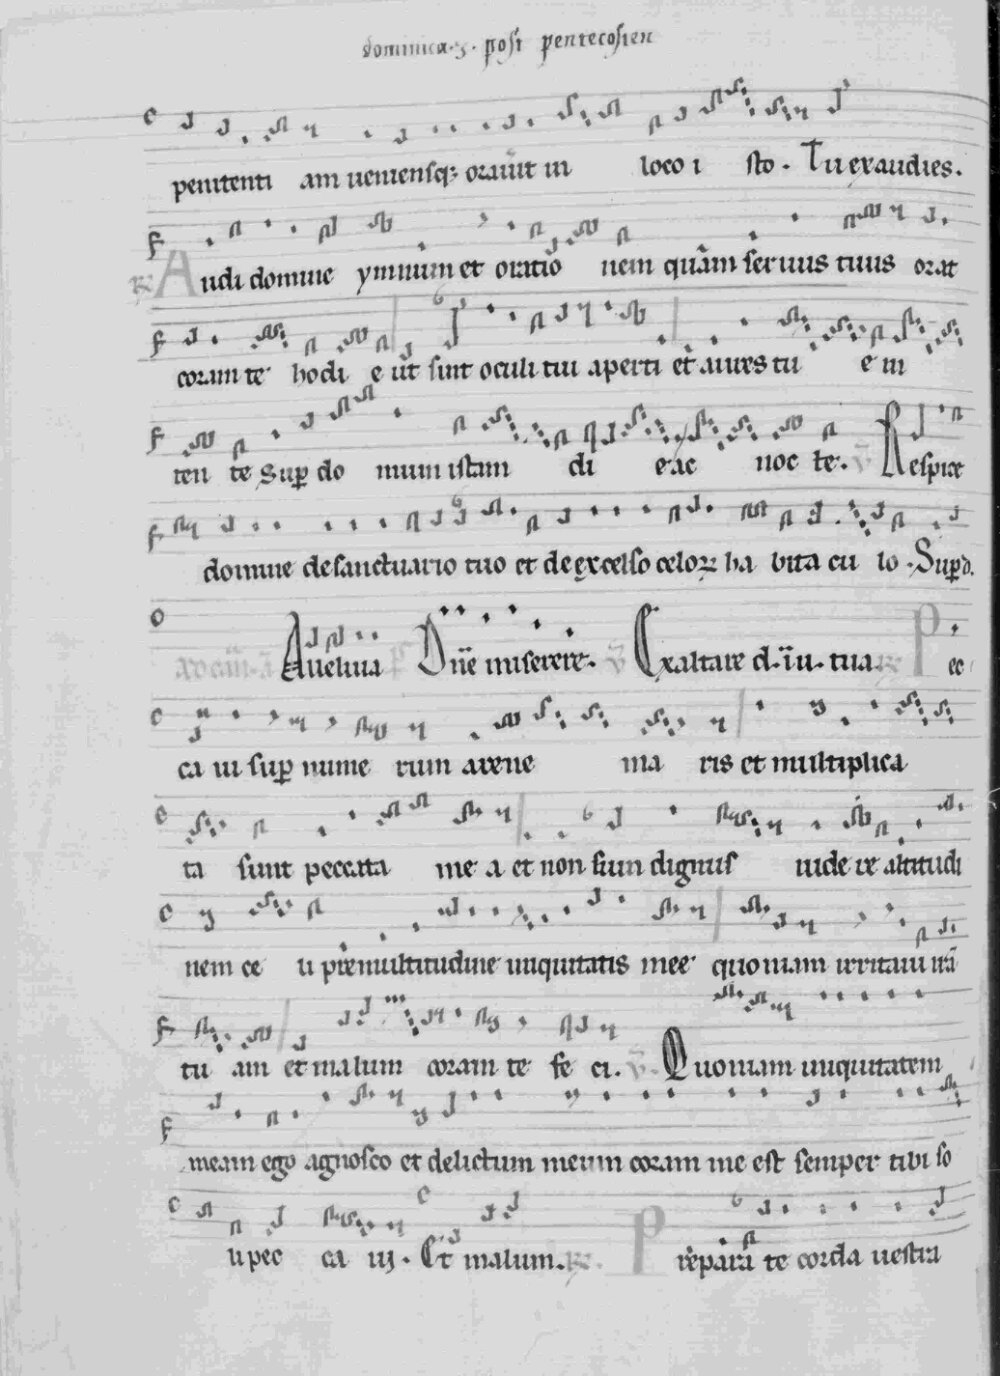 dominica .3. post pentecosten
penitenti am ueniensq; orauit in loco i sto. Tu exaudies.
R Audi domine ymnum et oratio nem quam seruus tuus orat
coram te hodi e ut sint oculi tui aperti et aures tu e in
ten te Sup do mum istam di e ac noc te. V Respice
domine de sanctuario tuo et de excelso celoꝝ ha bita cu lo. Sup d.
Aueluia Dn̄e miserere. V Exaltare d. in u. tua R Pec
ca ui sup nume rum arene ma ris et multiplica
ta sunt peccata me a et non sum dignus uide re altitudi
nem ce li pre multitudine iniquitatis mee quoniam irritaui irā
tu am et malum coram te fe ci. V. Quoniam iniquitatem
meam ego agnosco et delictum meum coram me est semper tibi so
li pec ca ui. Et malum. R. Prepara te corda uestra